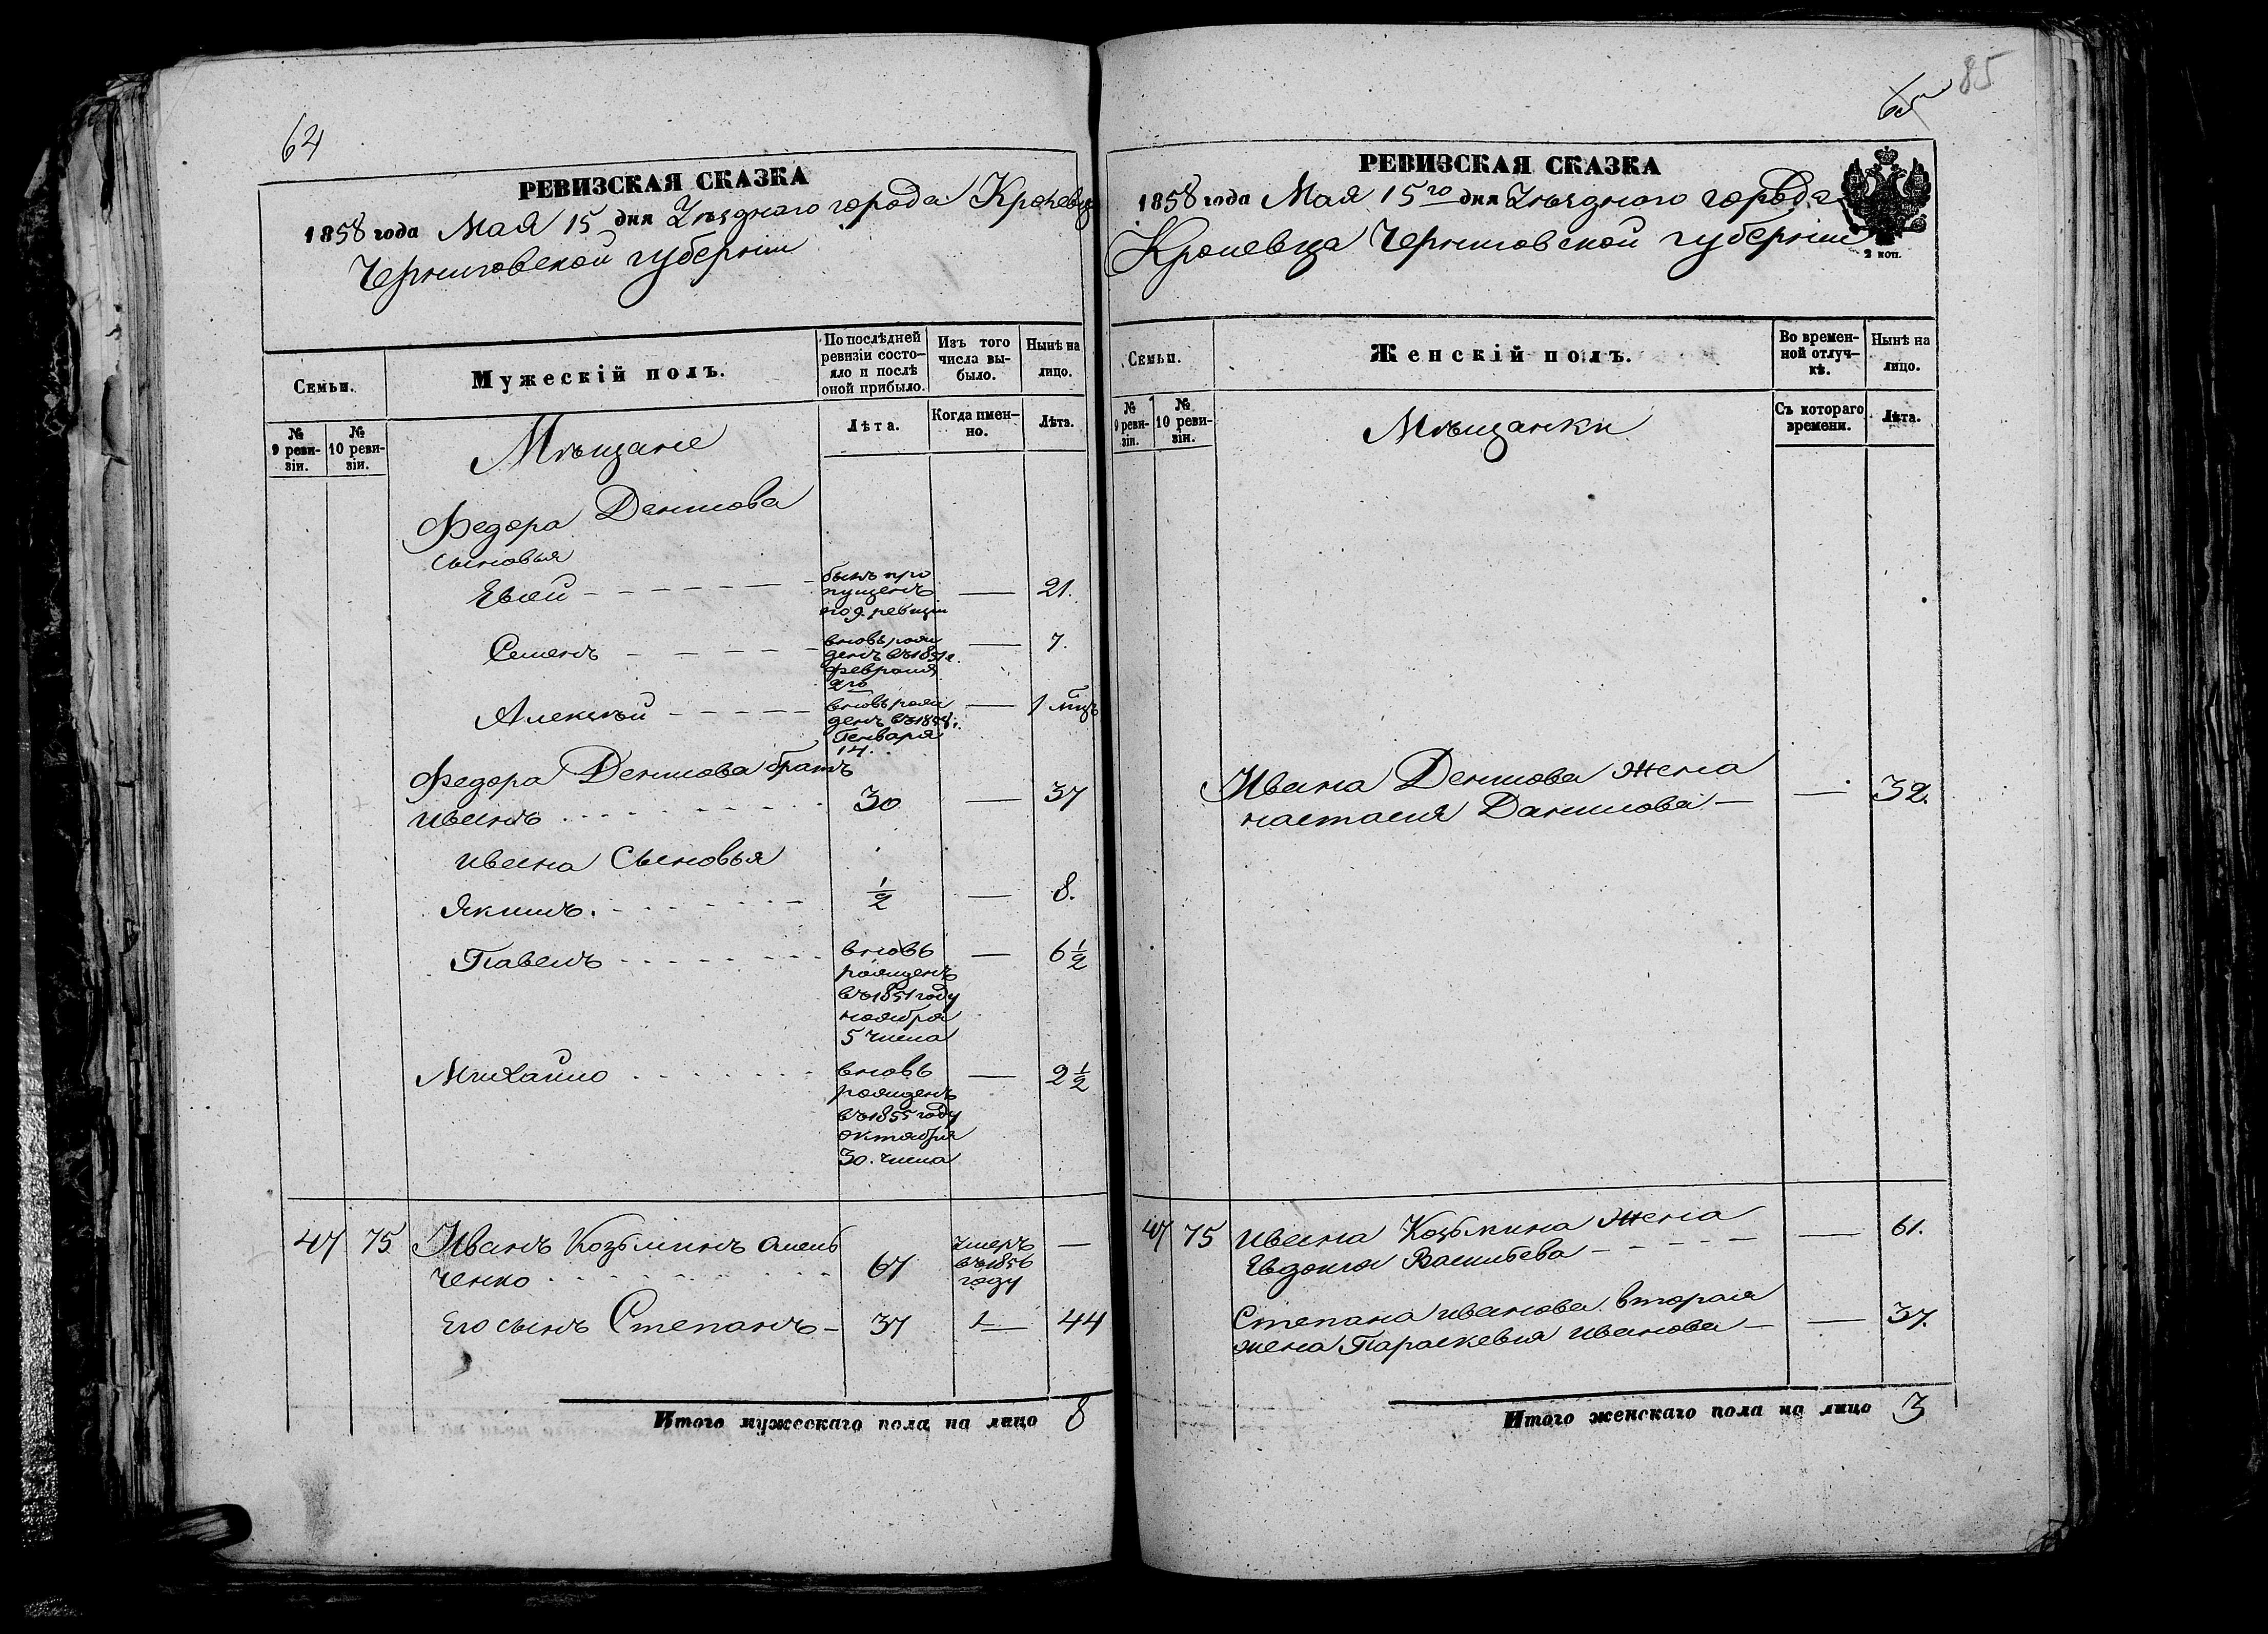 64
РЕВИЗСКАЯ СКАЗКА
1858 года Мая 15 дня Уѣзднаго города Кролевца
Черниговской губерніи
Семьи.
Мужескій полъ.
По послѣдней ревизіи состо-
яло и послѣ
оной прибыло.
Изъ того
числа вы-
было.
Нынѣ на
лицо.
№
9 реви-
зіи.
№
10 реви-
зіи.
Лѣта.
Когда имен-
но.
Лѣта.
Мѣщане
Федора Денисова
сыновья
Евсей
былъ про
пущенъ
по 9. ревизіи
—
21.
Семенъ
вновь рож
денъ въ 1851 г.
Февраля
2го
—
7.
Алексѣй
вновь рож
денъ въ 1858 г.
Генваря
14.
—
1 мѣц
Федора Денисова братъ
Иванъ
30
—
37
Ивана Сыновья
Якимъ.
1/2
—
8.
Павелъ
вновь
рожденъ
въ 1851 году
ноября
5 числа
—
6 1/2
Михайло
вновь
рожденъ
въ 1855 году
октября
30. числа
—
2 1/2
47 75 Иванъ Козьминъ
ченко
67
Умеръ
въ 1856
году
—
Его сынъ Степанъ
37
—
44
Итого мужескаго пола на лицо 8
65
85
РЕВИЗСКАЯ СКАЗКА
1858 года Мая 15го дня Уѣзднаго города
Кролевца Черниговской губерніи
2 коп.
Семьи.
Женскій полъ.
Во времен-
ной отлуч-
кѣ.
Нынѣ на
лицо.
№
9 реви-
зіи.
№
10 реви-
зіи.
Съ котораго
времени.
Лѣта.
Мѣщанки
Ивана Денисова жена
настасія Данилова —
—
32.
47 75 Ивана Козьмина жена
Евдокія Васильева
—
61.
Степана Иванова вторая
жена Параскевія Иванова —
—
37.
Итого женскаго пола на лицо 3